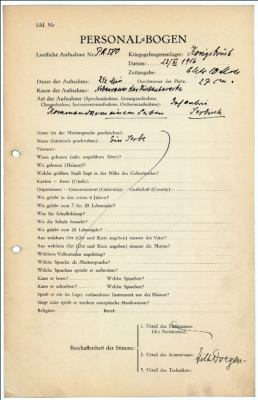 Lfd. Nr
PERSONAL-BOGEN
Lautliche Aufnahme Nr. PK 580 Kriegsgefangenenlager: Königsbrück
Datum: 1916
Zeitangabe: 6 Uhr 10
Dauer der Aufnahme: 2½ Min Durchmesser der Platte: 27 cm
Raum der Aufnahme:
Art der Aufnahme (Sprechaufnahme, Gesangsaufnahme, Choraufnahme, Instrumentenaufnahme, Orchesteraufnahme): Serbisch
Name (in der Muttersprache geschrieben):
Name (lateinisch geschrieben): Ein Serbe
Vorname:
Wann geboren (oder ungefähres Alter)?
Wo geboren (Heimat)?
Welche größere Stadt liegt in der Nähe des Geburtsortes?
Kanton — Kreis (Ujedz):
Departement — Gouvernement (Gubernija) — Grafschaft (County):
Wo gelebt in den ersten 6 Jahren?
Wo gelebt vom 7. bis 20. Lebensjahr?
Was für Schulbildung?
Wo die Schule besucht?
Wo gelebt vom 20. Lebensjahr?
Aus welchem Ort (Ort und Kreis angeben) stammt der Vater?
Aus welchem Ort (Ort und Kreis angeben) stammt die Mutter?
Welchem Volksstamm angehörig?
Welche Sprache als Muttersprache?
Welche Sprachen spricht er außerdem?
Kann er lesen? Welche Sprachen?
Kann er schreiben? Welche Sprachen?
Spielt er ein im Lager vorhandenes Instrument aus der Heimat?
Singt oder spielt er modern europäische Musikweisen?
Religion: Beruf:
1. Urteil des
(des Assistenten)
Beschaffenheit der Stimme: 2. Urteil des Kommissars: Wilh. Doegen.
3. Urteil des Technikers: